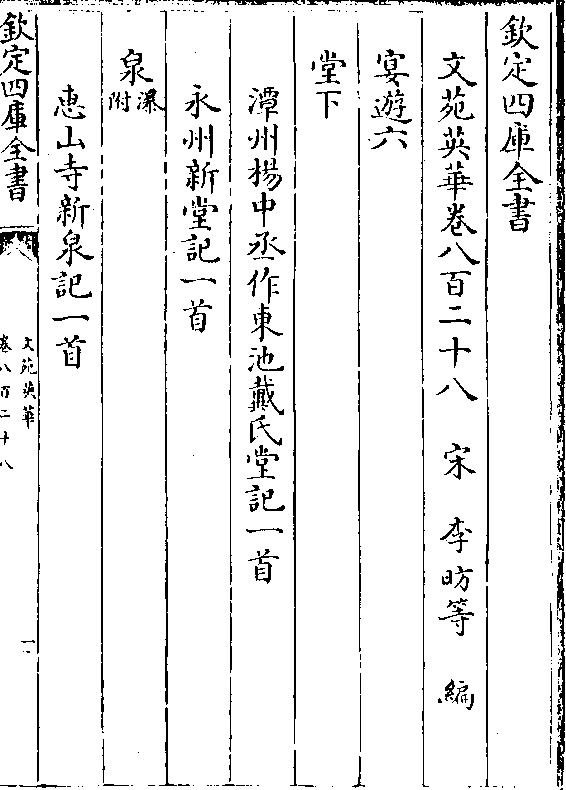 欽定四庫全書
文苑英華卷八百二十八　宋　李昉等　編
宴遊六
堂下
潭州楊中丞作東池戴氏堂記一首
永州新堂記一首
泉瀑附
惠山寺新泉記一首
欽定四庫全書
文苑英華
卷八百二十八
一